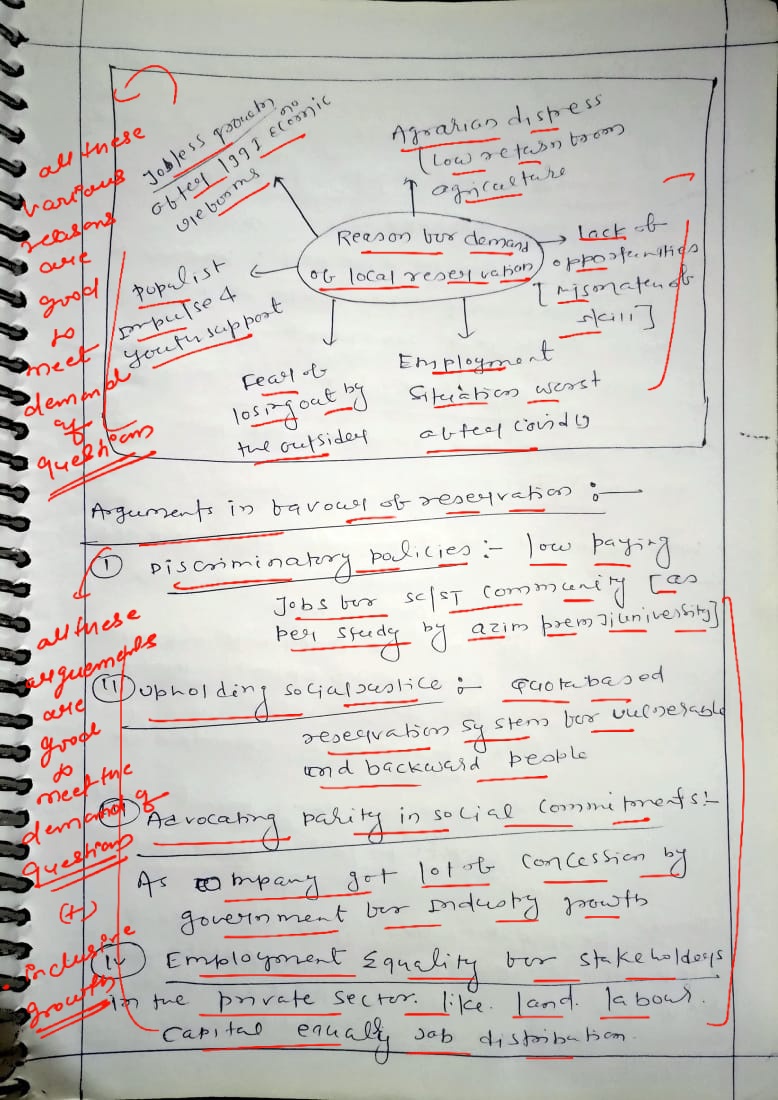 Jobless growth no
after 1991 Ecomic
reforms
Agrarian distress
(Low return from
agriculture
Reason for demand
of local reservation
Lack of
opportunities
[Mismatch of
skill]
Populist
Impulse &
youth support
Fear of
losing out by
the outsider
Employment
Situation worst
after Covid 19
all these
various
reasons
are
good
to
meet
demand
of
question
Arguments in favour of reservation :-
(i) Discriminatory policies :- low paying
Jobs for SC/ST community [as
per study by azim premji university]
(ii) Upholding social justice :- Quota based
reservation system for vulnerable
and backward people
Advocating parity in social commitments :-
As company got lot of concession by
government for Industry growth
(iv) Employment Equality for stakeholders
in the private sector. like. land. labour.
Capital equally Job distribution.
all these
arguements
are
good
to
meet the
demand of
question
(+)
inclusive
growth